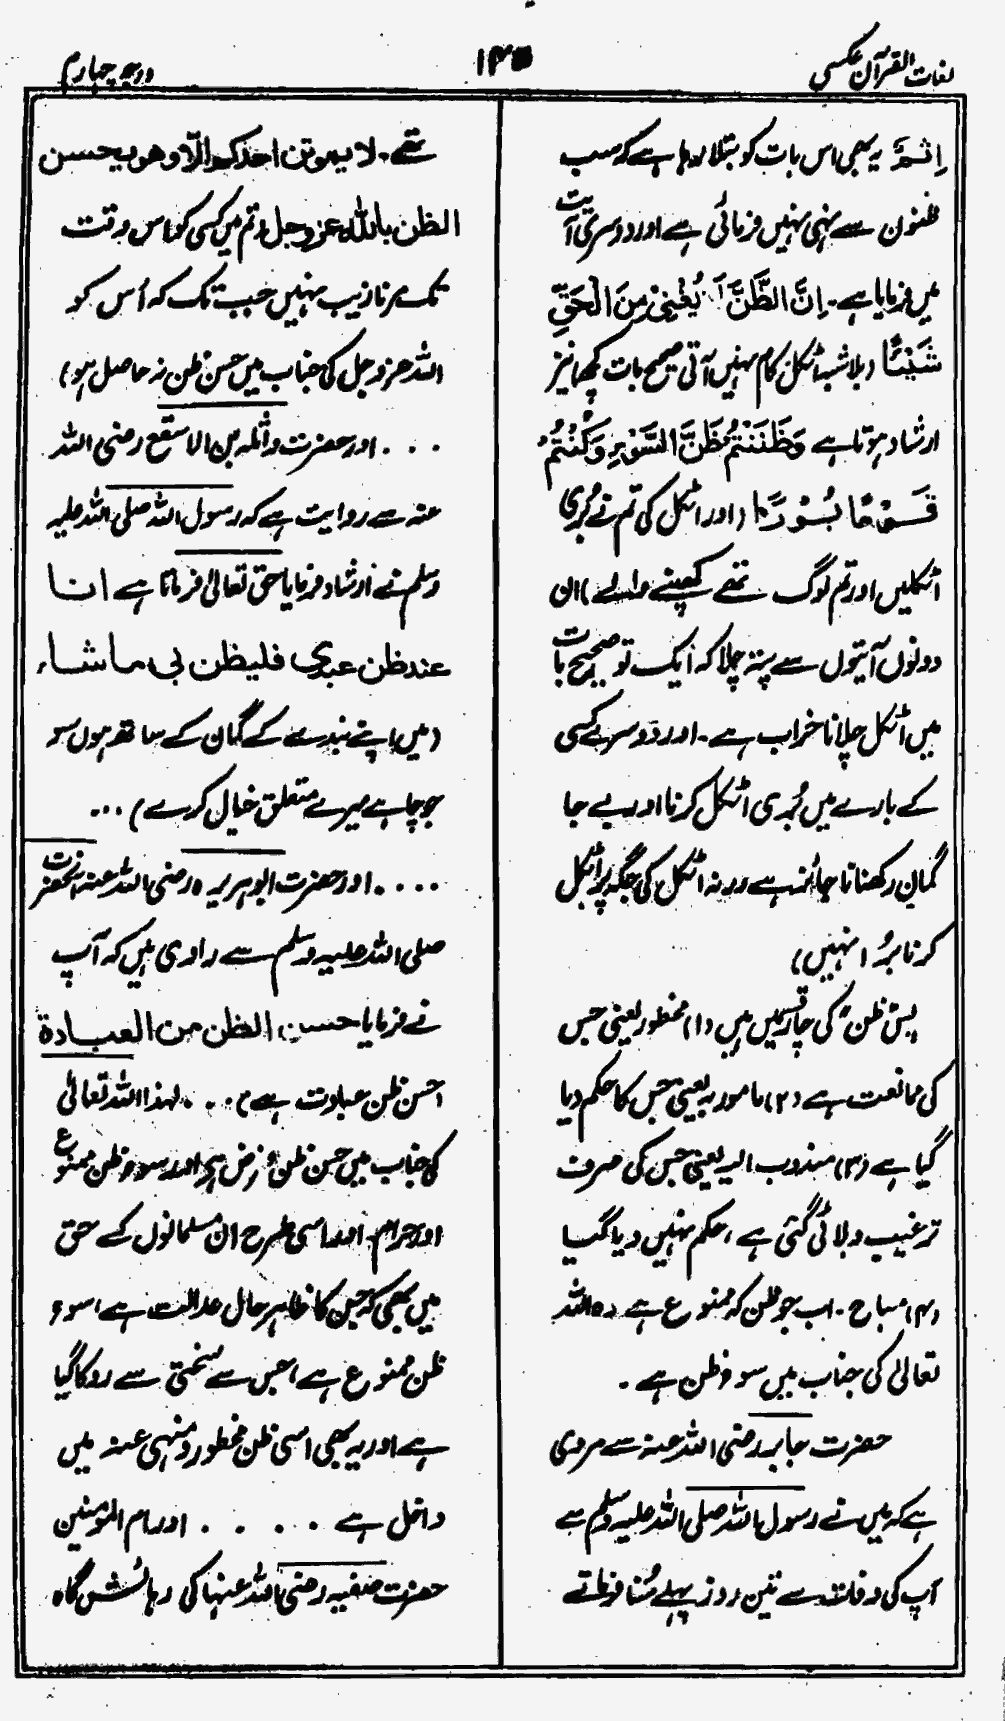 لغات القرآن عکسی
درجہ چہارم
اِثْمٌ یہ بھی اس بات کو بتلا رہا ہے کہ سب
ظنون سے نہی نہیں فرمائی ہے اور دوسری آیت
میں فرمایا ہے۔ اِنَّ الظَّنَّ لَا یُغْنِیْ مِنَ الْحَقِّ
شَیْئًا (بلاشبہ اٹکل کام نہیں آتی صحیح بات کچھ) نیز
ارشاد ہوتا ہے وَظَنَنْتُمْ ظَنَّ السَّوْءِ وَكُنْتُمْ
قَوْمًا بُوْرًا (اور اٹکل کی تم نے بُری
اٹکلیں اور تم لوگ تھے کھپنے والے) ان
دونوں آیتوں سے پتہ چلا کہ ایک تو صحیح بات
میں اٹکل چلانا خراب ہے۔ اور دوسرے کسی
کے بارے میں بُری اٹکل کرنا اور بے جا
گمان رکھنا ناجائز ہے ورنہ اٹکل کی جگہ پر اٹکل
کرنا بُرا نہیں)
پس ظن کی چار قسمیں ہیں (۱) محظور یعنی جس
کی ممانعت ہے (۲) مامور بہ یعنی جس کا حکم دیا
گیا ہے (۳) مندوب الیہ یعنی جس کی صرف
ترغیب دلائی گئی ہے، حکم نہیں دیا گیا
(۴) مباح۔ اب جو ظن کہ ممنوع ہے وہ اللہ
تعالیٰ کی جناب میں سوء ظن ہے۔
حضرت جابر رضی اللہ عنہ سے مروی
ہے کہ میں نے رسول اللہ صلی اللہ علیہ وسلم سے
آپ کی وفات سے تین روز پہلے سُنا فرماتے
تھے۔ لا یموتن احدکم الّا وھو یحسن
الظن باللہ عزوجل (تم میں کسی کو اس وقت
تک مرنا زیب نہیں جب تک کہ اُس کو
اللہ عزوجل کی جناب میں حسن ظن نہ حاصل ہو)
... اور حضرت واثلہ بن الاسقع رضی اللہ
عنہ سے روایت ہے کہ رسول اللہ صلی اللہ علیہ
وسلم نے ارشاد فرمایا حق تعالیٰ فرماتا ہے انا
عند ظن عبدی فلیظن بی ما شاء
(میں اپنے بندے کے گمان کے ساتھ ہوں سو
جو چاہے میرے متعلق خیال کرے) ...
.... اور حضرت ابو ہریرہ رضی اللہ عنہ آنحضرت
صلی اللہ علیہ وسلم سے راوی ہیں کہ آپ
نے فرمایا حسن الظن من العبادۃ
(حسن ظن عبادت ہے) ... لہذا اللہ تعالیٰ
کی جناب میں حسن ظن فرض ہے اور سوء ظن ممنوع
اور حرام۔ اور اسی طرح ان مسلمانوں کے حق
میں بھی کہ جن کا ظاہر حال عدالت ہے، سوء
ظن ممنوع ہے، جس سے سختی سے روکا گیا
ہے اور یہ بھی اسی ظن محظور و منہی عنہ میں
داخل ہے .... اور ام المومنین
حضرت صفیہ رضی اللہ عنہا کی رہائش گاہ